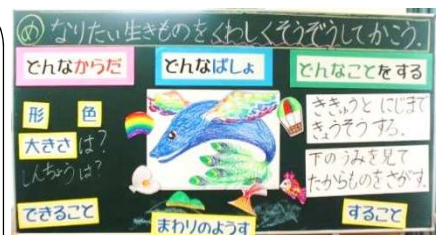 め なりたい生きものをくわしくそうぞうしてかこう。
どんなからだ
どんなばしょ
どんなことをする
形 色
大きさは?
しんちょうは?
できること
まわりのようす
ききゅうと にじまで
きょうそうする。
下のうみを見て
たからものをさがす。
すること